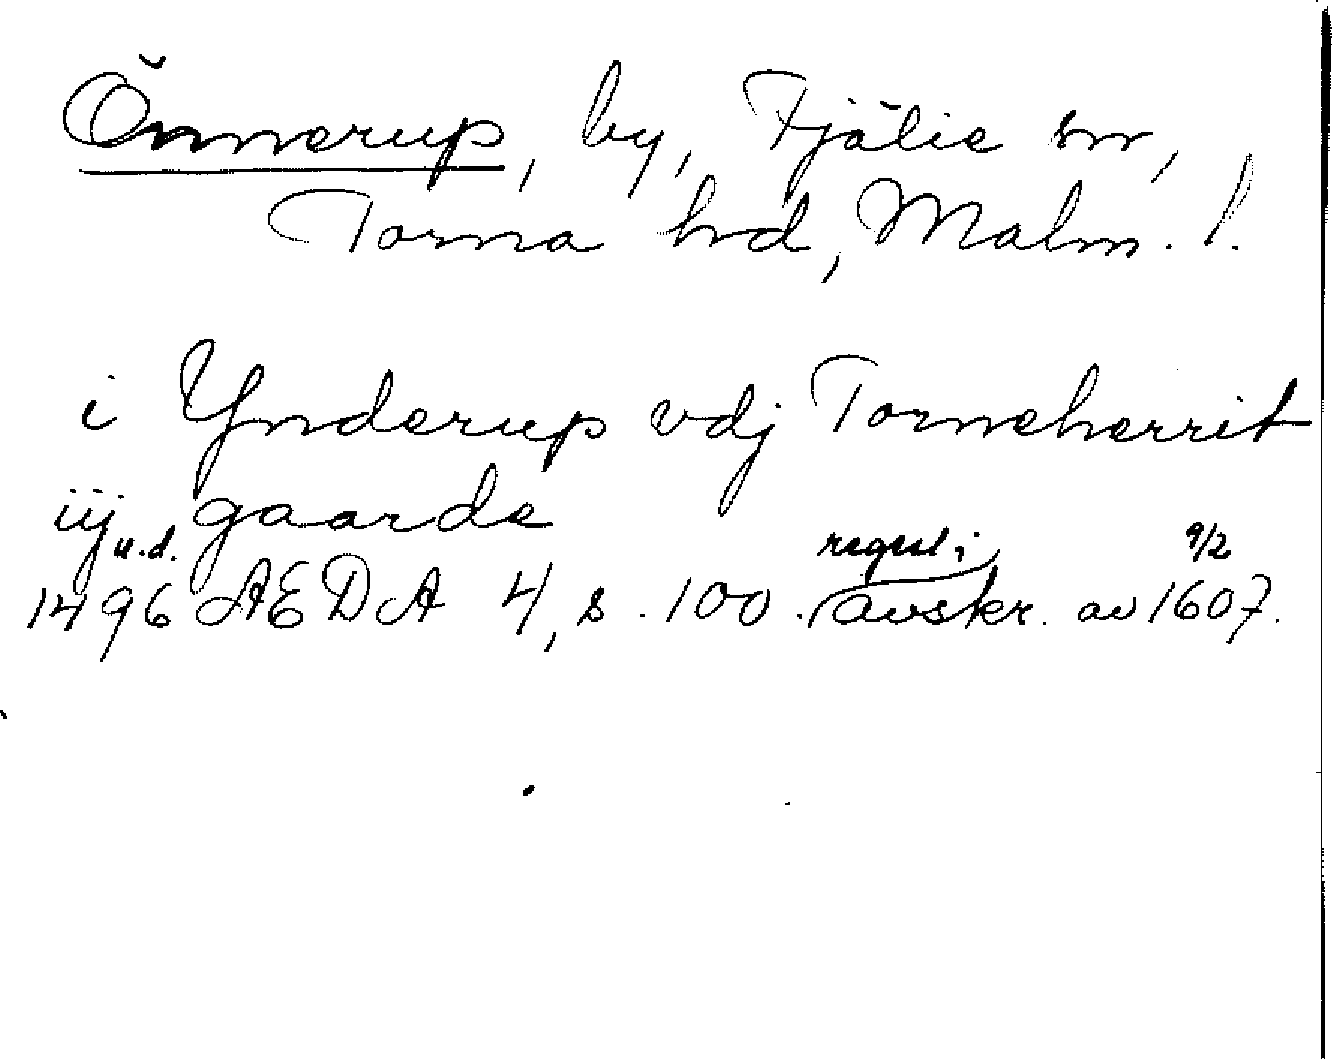 Önnerup, by, Fjälie sn,
Torna hd, Malm. l.
i Ynderup vdj Torneherrit
iij gaarde
1496 u.d. ÆDA 4, s. 100. reg. i avskr. av 9/2 1607.